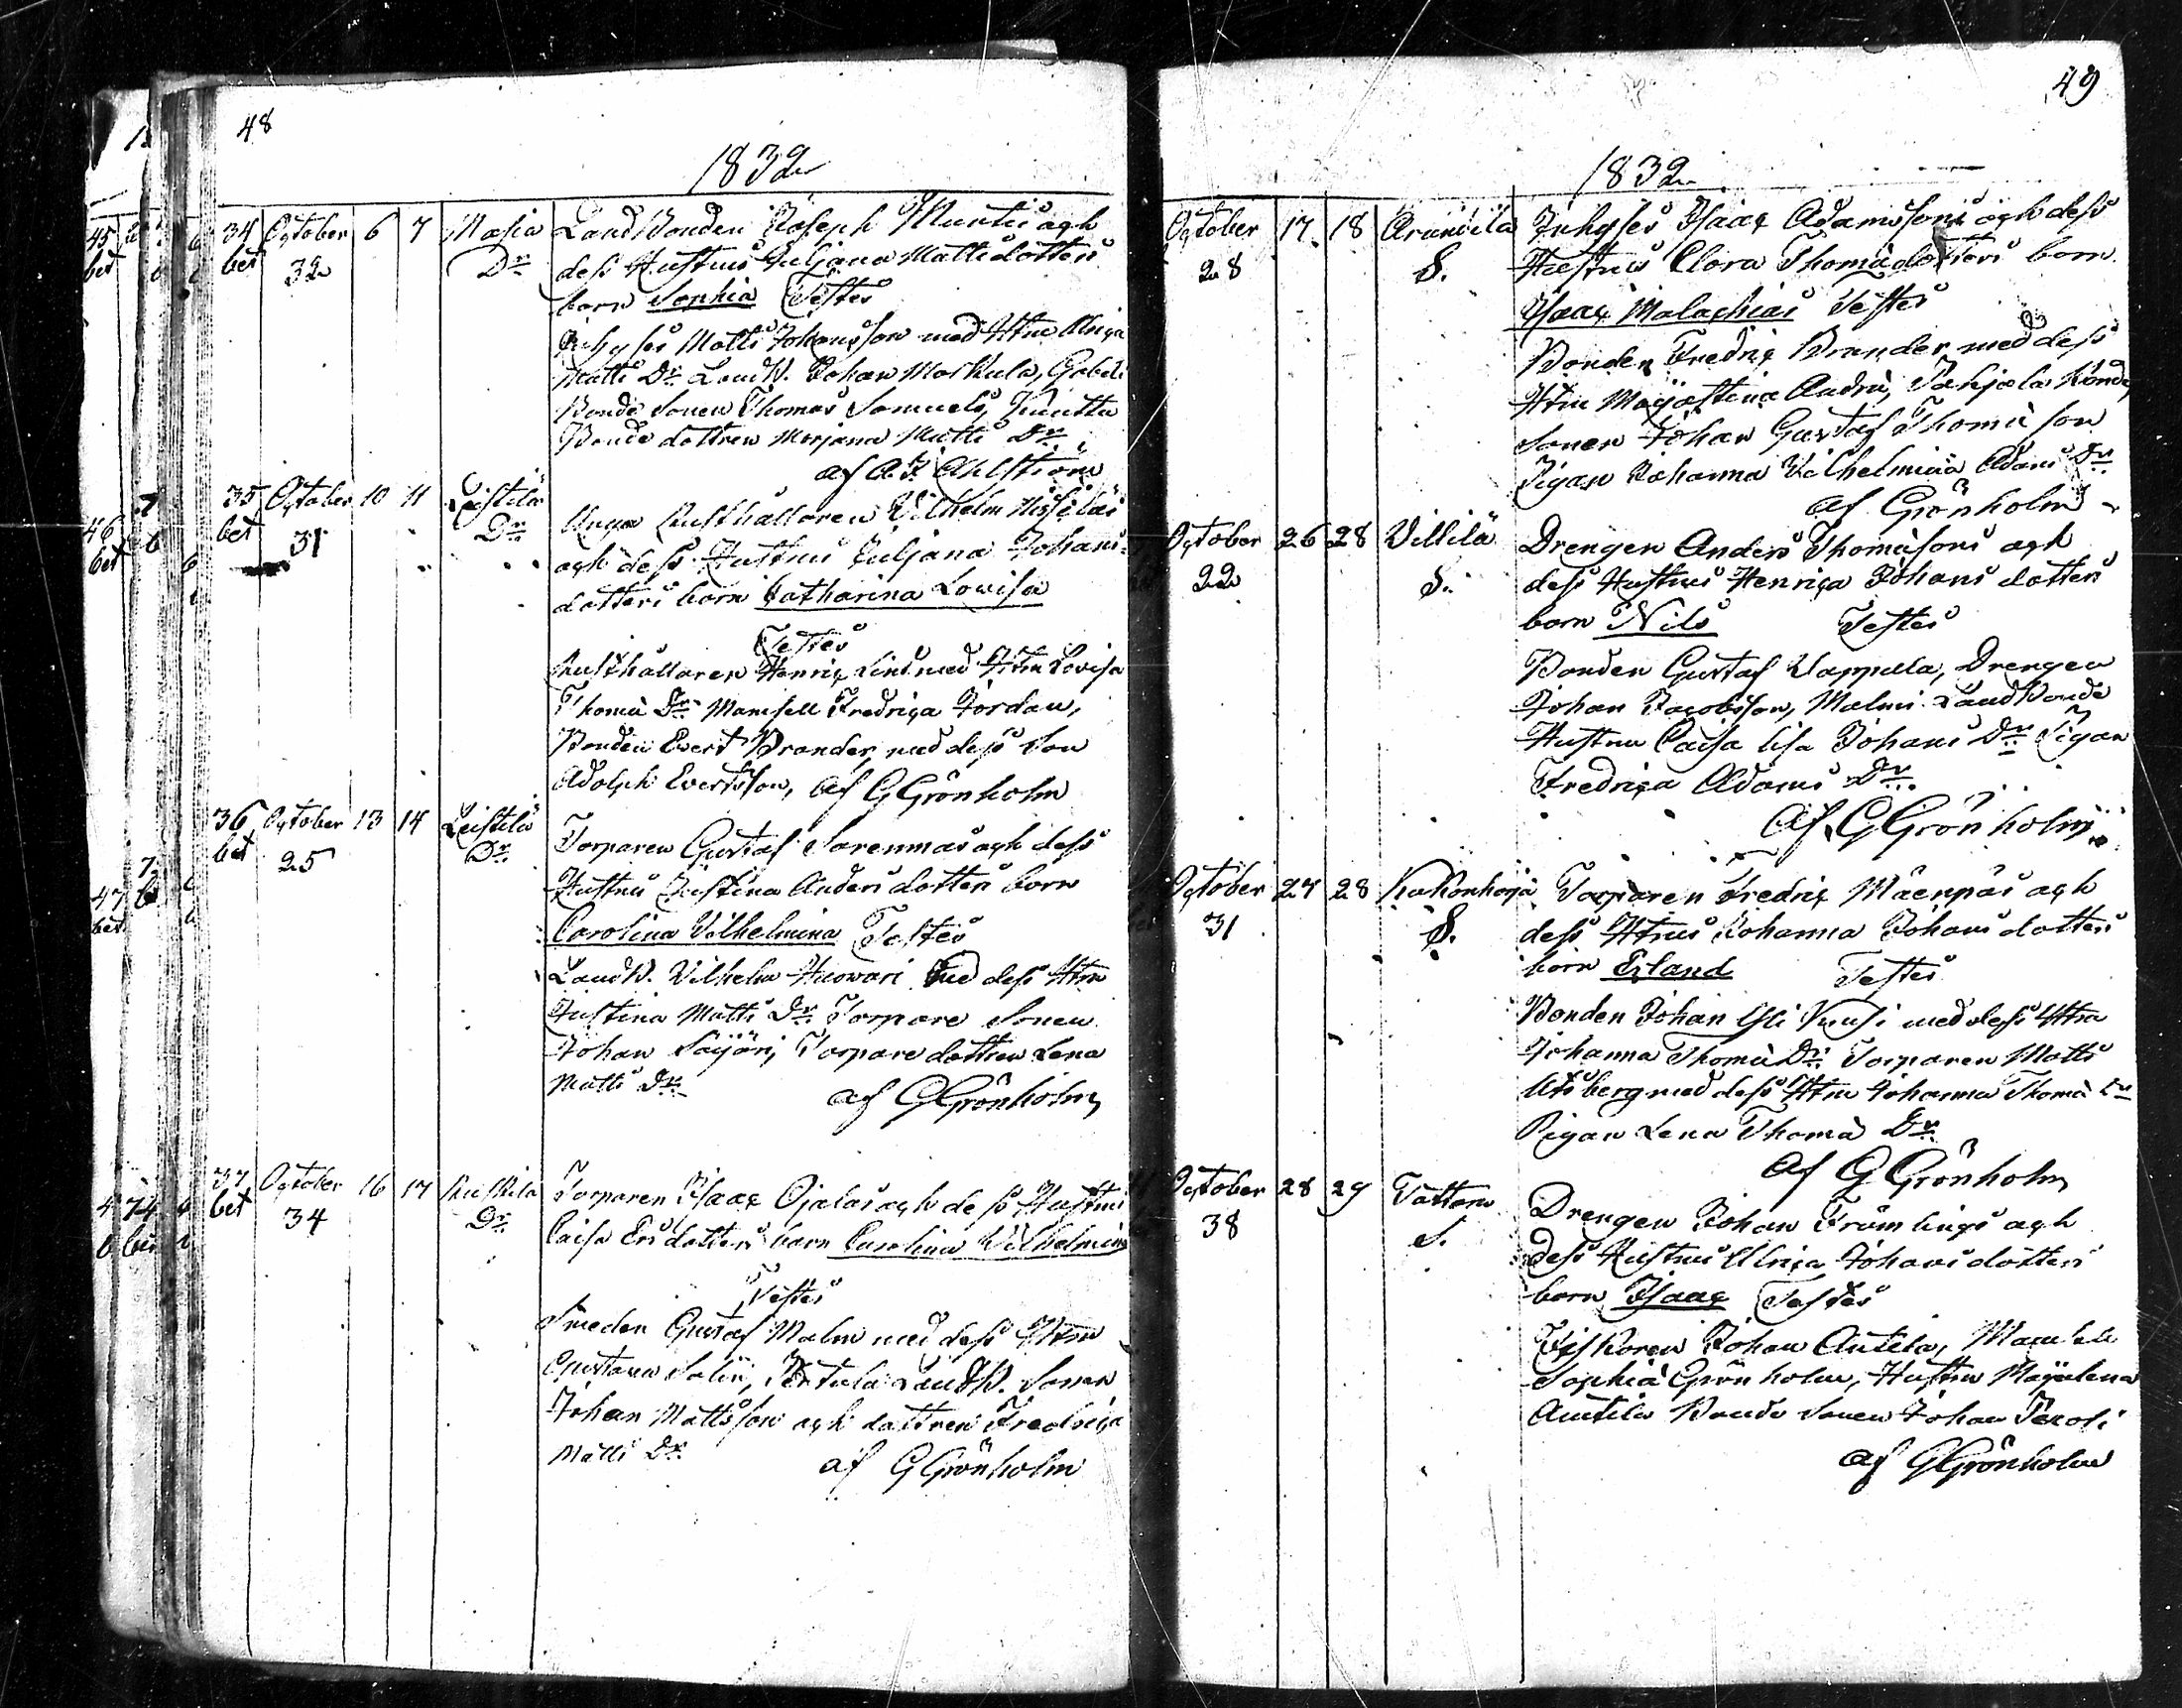 48
1832
34 October 6 7 Masia LandBonden Joseph Muntis ach
bet 32 Dr dess Hustrus Juljana Mattsdotters
barn Sophia Testes
Inhyses Matts Johansson med Hstru
Matts Dr LandB. Johan Markula,
Bonde Sonen Thomas Samuels,
Bonde dottren Marjana Matts Dr
af A. F. Ahlström
35 October 10 11 Leistilä Unga Rusthållaren Vilhelm
bet 31 Dr ach dess Hustrus Juljana Johans
dotters barn Catharina Lowisa
Testes
Rusthållaren Henric Lind med Hstru Lovisa
Thomæ Dr Mamsell Fredrica Jordan,
Bonden Evert Brander, med dess Son
Adolph Evertsson, af G Grönholm
36 October 13 14 Leistilä Torparen Gustaf Sorenmas ach dess
bet 25 Dr Hustrus Justina Anders dotters barn
Carolina Vilhelmina Testes
LandB. Vilhelm Huowari med dess Hstru
Justina Matts Dr Torpare Sonen
Johan Säijäri, Torpare dottren Lena
Matts Dr af G Grönholm
37 October 16 17 Ruskila Torparen Isaac Ojalas ach dess Hustrus
bet 34 Dr Caisa Ers dotters barn Carolina Vilhelmina
Testes
Smeden Gustaf Malm med dess Hstru
Gustava Salin, LandB. Sonen
Johan Mattsson ach dottren Fredrica
Matts Dr af G Grönholm
49
1832
October 17 18 Arandila Inhyses Isaac Adamssons ach dess
28 S. Hustrus Clara Thomædotters barn
Isaac Malachias Testes
Bonden Fredric Brander med dess
Hstru Majastina Anders, Bonde
Sonen Johan Gustaf Thomæ son
Pigan Johanna Vilhelmina Adams Dr
af Grönholm
October 26 28 Villilä Drengen Anders Thomæsons ach
22 S. dess Hustrus Henrica Johans dotters
barn Nils Testes
Bonden Gustaf Uappula, Drengen
Johan Jacobsson, Malmi LandBonde
Hustru Caisa Lisa Johans Dr Pigan
Fredrica Adams Dr
Af G Grönholm
October 27 28 Kukonharja Torparen Fredric Mäenpäs ach
31 S. dess Hstrus Johanna Johans dotters
barn Erland Testes
Bonden Johan Yli Kuusi med dess Hstru
Johanna Thomæ Dr Torparen Matts
med dess Hstru Johanna Thomæ Dr
Pigan Lena Thomæ Dr
af G Grönholm
October 28 29 Tattara Drengen Johan Främlings ach
38 S. dess Hustrus Ulrica Johans dotters
barn Isaac Testes
Fiskaren Johan Anttila, Mamsell
Sophia Grönholm, Hustru Majalena
Anttila Bonde Sonen Johan
af G Grönholm